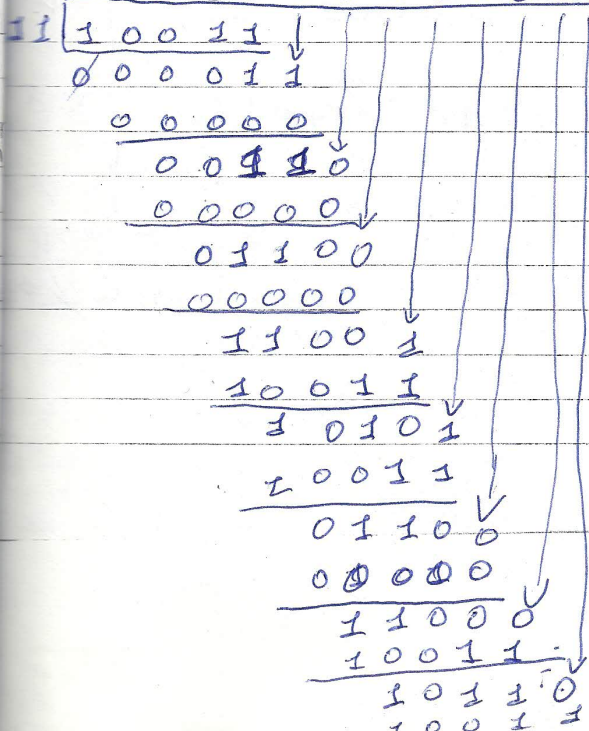 11 1 0 0 1 1
0 0 0 0 1 1
0 0 0 0 0
0 0 1 1 0
0 0 0 0 0
0 1 1 0 0
0 0 0 0 0
1 1 0 0 1
1 0 0 1 1
1 0 1 0 1
1 0 0 1 1
0 1 1 0 0
0 0 0 0 0
1 1 0 0 0
1 0 0 1 1
1 0 1 1 0
1 0 0 1 1